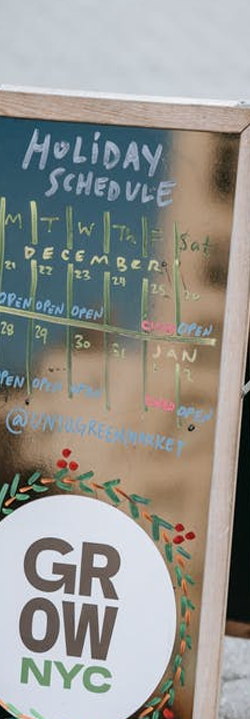 HOLiDAY
SCHEDULE
M T W Th F Sat
DECEMBER
21 22 23 24 25 26
OPEN OPEN OPEN OPEN
28 29 30 31 JAN
1 2
OPEN OPEN OPEN OPEN
GR
OW
NYC